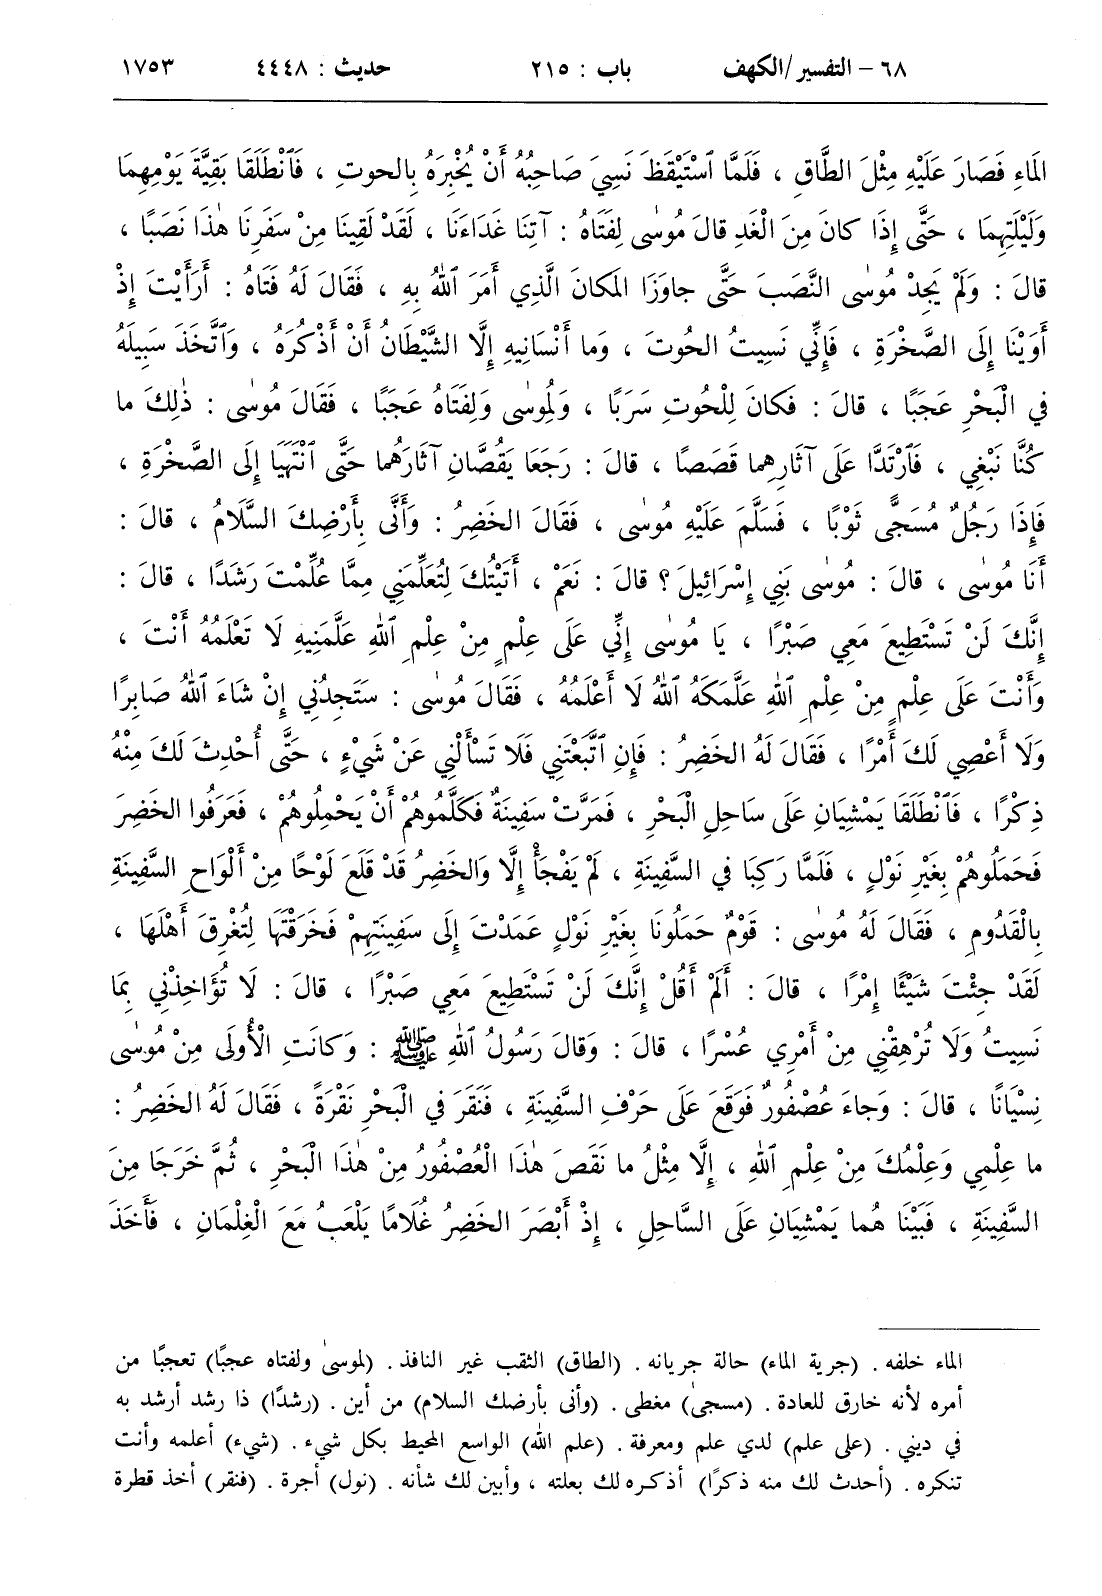 ٦٨ - التفسير/الكهف باب : ٢١٥ حديث : ٤٤٤٨ ١٧٥٣
المَاءِ فَصَارَ عَلَيْهِ مِثْلَ الطَّاقِ ، فَلَمَّا ٱسْتَيْقَظَ نَسِيَ صَاحِبُهُ أَنْ يُخْبِرَهُ بِالحوتِ ، فَٱنْطَلَقَا بَقِيَّةَ يَوْمِهِمَا
وَلَيْلَتِهِما ، حَتَّى إِذَا كانَ مِنَ الْغَدِ قالَ مُوسٰى لِفَتَاهُ : آتِنَا غَدَاءَنَا ، لَقَدْ لَقِينَا مِنْ سَفَرِنَا هٰذَا نَصَبًا ،
قالَ : وَلَمْ يَجِدْ مُوسٰى النَّصَبَ حَتَّى جاوَزَا المَكانَ الَّذِي أَمَرَ ٱللهُ بِهِ ، فَقَالَ لَهُ فَتَاهُ : أَرَأَيْتَ إِذْ
أَوَيْنَا إِلَى الصَّخْرَةِ ، فَإِنِّي نَسِيتُ الحُوتَ ، وَما أَنْسَانِيهِ إِلَّا الشَّيْطَانُ أَنْ أَذْكُرَهُ ، وَٱتَّخَذَ سَبِيلَهُ
في الْبَحْرِ عَجَبًا ، قالَ : فَكانَ لِلْحُوتِ سَرَبًا ، وَلِمُوسٰى وَلِفَتَاهُ عَجَبًا ، فَقَالَ مُوسٰى : ذٰلِكَ ما
كُنَّا نَبْغِي ، فَٱرْتَدَّا عَلَى آثارِهِما قَصَصًا ، قالَ : رَجَعَا يَقُصَّانِ آثارَهُما حَتَّى ٱنْتَهَيَا إِلَى الصَّخْرَةِ ،
فَإِذَا رَجُلٌ مُسَجًّى ثَوْبًا ، فَسَلَّمَ عَلَيْهِ مُوسٰى ، فَقَالَ الخَضِرُ : وَأَنَّى بِأَرْضِكَ السَّلَامُ ، قالَ :
أَنَا مُوسٰى ، قالَ : مُوسٰى بَنِي إِسْرَائِيلَ ؟ قالَ : نَعَمْ ، أَتَيْتُكَ لِتُعَلِّمَنِي مِمَّا عُلِّمْتَ رَشَدًا ، قالَ :
إِنَّكَ لَنْ تَسْتَطِيعَ مَعِي صَبْرًا ، يَا مُوسٰى إِنِّي عَلَى عِلْمٍ مِنْ عِلْمِ ٱللهِ عَلَّمَنِيهِ لَا تَعْلَمُهُ أَنْتَ ،
وَأَنْتَ عَلَى عِلْمٍ مِنْ عِلْمِ ٱللهِ عَلَّمَكَهُ ٱللهُ لَا أَعْلَمُهُ ، فَقَالَ مُوسٰى : سَتَجِدُنِي إِنْ شَاءَ ٱللهُ صَابِرًا
وَلَا أَعْصِي لَكَ أَمْرًا ، فَقَالَ لَهُ الخَضِرُ : فَإِنِ ٱتَّبَعْتَنِي فَلَا تَسْأَلْنِي عَنْ شَيْءٍ ، حَتَّى أُحْدِثَ لَكَ مِنْهُ
ذِكْرًا ، فَٱنْطَلَقَا يَمْشِيَانِ عَلَى سَاحِلِ الْبَحْرِ ، فَمَرَّتْ سَفِينَةٌ فَكَلَّمُوهُمْ أَنْ يَحْمِلُوهُمْ ، فَعَرَفُوا الخَضِرَ
فَحَمَلُوهُمْ بِغَيْرِ نَوْلٍ ، فَلَمَّا رَكِبَا في السَّفِينَةِ ، لَمْ يَفْجَأْ إِلَّا وَالخَضِرُ قَدْ قَلَعَ لَوْحًا مِنْ أَلْوَاحِ السَّفِينَةِ
بِالْقَدُومِ ، فَقَالَ لَهُ مُوسٰى : قَوْمٌ حَمَلُونَا بِغَيْرِ نَوْلٍ عَمَدْتَ إِلَى سَفِينَتِهِمْ فَخَرَقْتَهَا لِتُغْرِقَ أَهْلَهَا ،
لَقَدْ جِئْتَ شَيْئًا إِمْرًا ، قالَ : أَلَمْ أَقُلْ إِنَّكَ لَنْ تَسْتَطِيعَ مَعِي صَبْرًا ، قالَ : لَا تُؤَاخِذْنِي بِمَا
نَسِيتُ وَلَا تُرْهِقْنِي مِنْ أَمْرِي عُسْرًا ، قالَ : وَقالَ رَسُولُ ٱللهِ ﷺ : وَكانَتِ الْأُولَى مِنْ مُوسٰى
نِسْيَانًا ، قالَ : وَجاءَ عُصْفُورٌ فَوَقَعَ عَلَى حَرْفِ السَّفِينَةِ ، فَنَقَرَ في الْبَحْرِ نَقْرَةً ، فَقَالَ لَهُ الخَضِرُ :
ما عِلْمِي وَعِلْمُكَ مِنْ عِلْمِ ٱللهِ ، إِلَّا مِثْلُ ما نَقَصَ هٰذَا الْعُصْفُورُ مِنْ هٰذَا الْبَحْرِ ، ثُمَّ خَرَجَا مِنَ
السَّفِينَةِ ، فَبَيْنَا هُما يَمْشِيَانِ عَلَى السَّاحِلِ ، إِذْ أَبْصَرَ الخَضِرُ غُلَامًا يَلْعَبُ مَعَ الْغِلْمَانِ ، فَأَخَذَ
الماء خلفه . (جرية الماء) حالة جريانه . (الطاق) الثقب غير النافذ . (لموسىٰ ولفتاه عجبًا) تعجبًا من
أمره لأنه خارق للعادة . (مسجىٰ) مغطى . (وأنى بأرضك السلام) من أين . (رشدًا) ذا رشد أرشد به
في ديني . (على علم) لدي علم ومعرفة . (علم الله) الواسع المحيط بكل شيء . (شيء) أعلمه وأنت
تنكره . (أحدث لك منه ذكرًا) أذكره لك بعلته ، وأبين لك شأنه . (نول) أجرة . (فنقر) أخذ قطرة